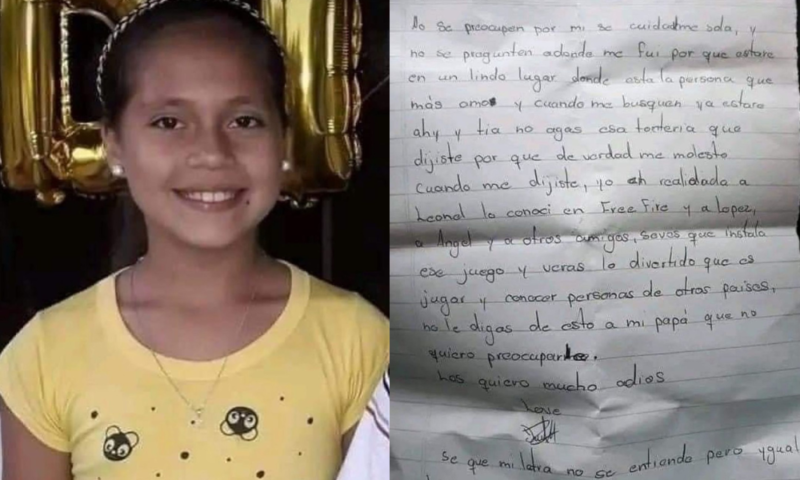 No se preocupen por mi se cuidarme sola, y
no se pregunten adonde me fui por que estare
en un lindo lugar donde esta la persona que
más amo y cuando me busquen ya estare
ahy y tia no agas esa tonteria que
dijiste por que de verdad me molesto
cuando me dijiste, yo en realidada a
Leonal lo conoci en Free Fire y a Lopez,
a Angel y a otros amigos, savas que instala
ese juego y veras lo divertido que es
jugar y conocer personas de otros paises,
no le digas de esto a mi papá que no
quiero preocuparle.
Los quiero mucho adios
Love
se que mi letra no se entiende pero ygual